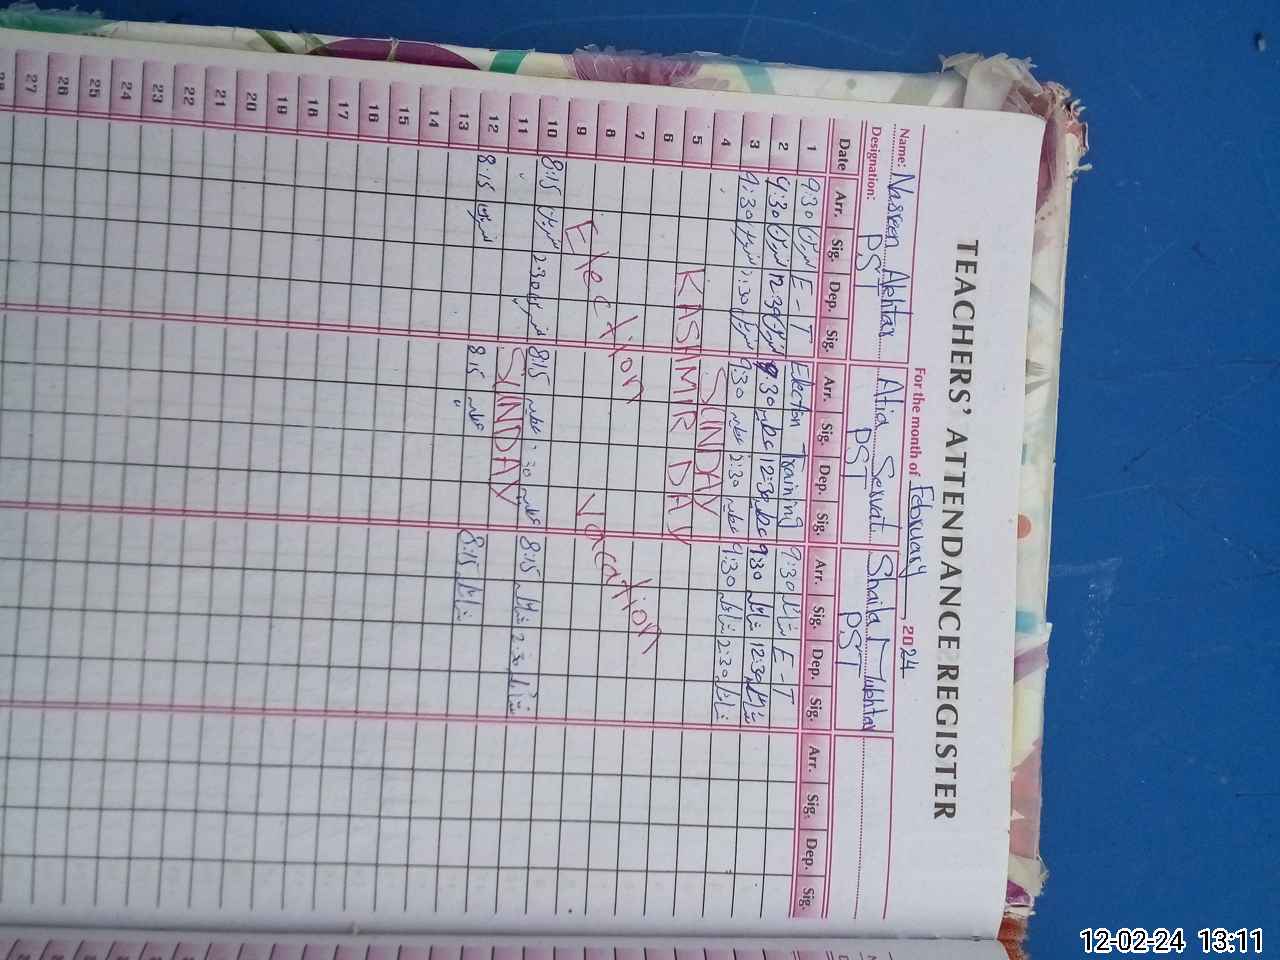 TEACHERS' ATTENDANCE REGISTER
For the month of February, 2024
Name: Nasreen Akhtar Atia Sarwat Shaila Mukhtar
Designation: PST PST PST
Date Arr. Sig. Dep. Sig. Arr. Sig. Dep. Sig. Arr. Sig. Dep. Sig. Arr. Sig. Dep. Sig.
1 9:30 نسرین E-T Election Training 9:30 شمائلہ E-T
2 9:30 نسرین 12:30 نسرین 9:30 عطیہ 12:30 عطیہ 9:30 شمائلہ 12:30 شمائلہ
3 9:30 نسرین 2:30 نسرین 9:30 عطیہ 2:30 عطیہ 9:30 شمائلہ 2:30 شمائلہ
4 SUNDAY
5 KASHMIR DAY
6
7
8 Election Vacation
9
10 8:15 نسرین 2:30 نسرین 8:15 عطیہ 2:30 عطیہ 8:15 شمائلہ 2:30 شمائلہ
11 SUNDAY
12 8:15 نسرین 8:15 عطیہ 8:15 شمائلہ
13
14
15
16
17
18
19
20
21
22
23
24
25
26
27
28
12-02-24 13:11